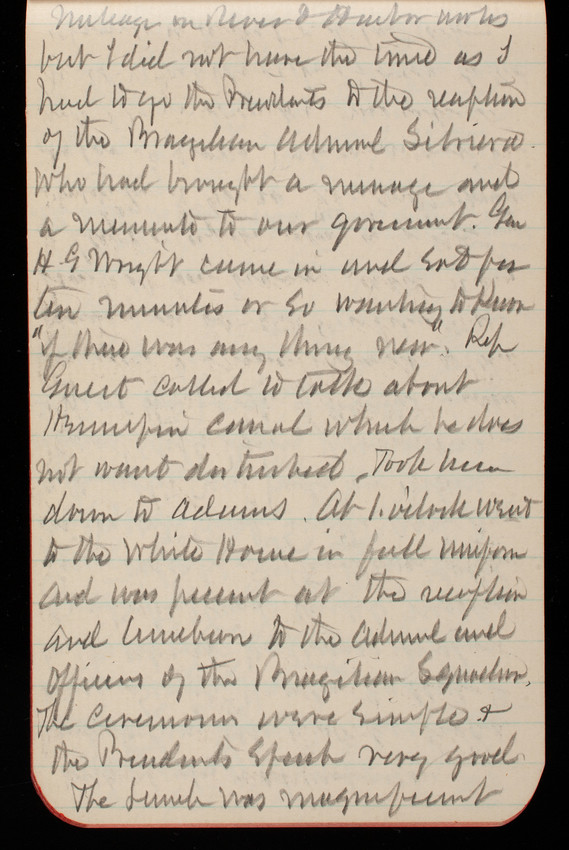 mileage on River & Harbor works
but I did not have the time as I
had to go the Presidents to the reception
of the Brazilian Admiral Silviera
who had brought a message and
a memento to our goverment. Gen
H G Wright came in and sat for
ten minutes or so wanting to know
"if there was any thing new". Rep
Guest called to talk about
Hennepin canal which he does
not want disturbed. Took him
down to Adams. At 1. oclock went
to the White House in full uniform
and was present at the reception
and luncheon to the Admiral and
Officers of the Brazilian Squadron.
The ceremonies were simple &
the Presidents speech very good
The lunch was magnificent